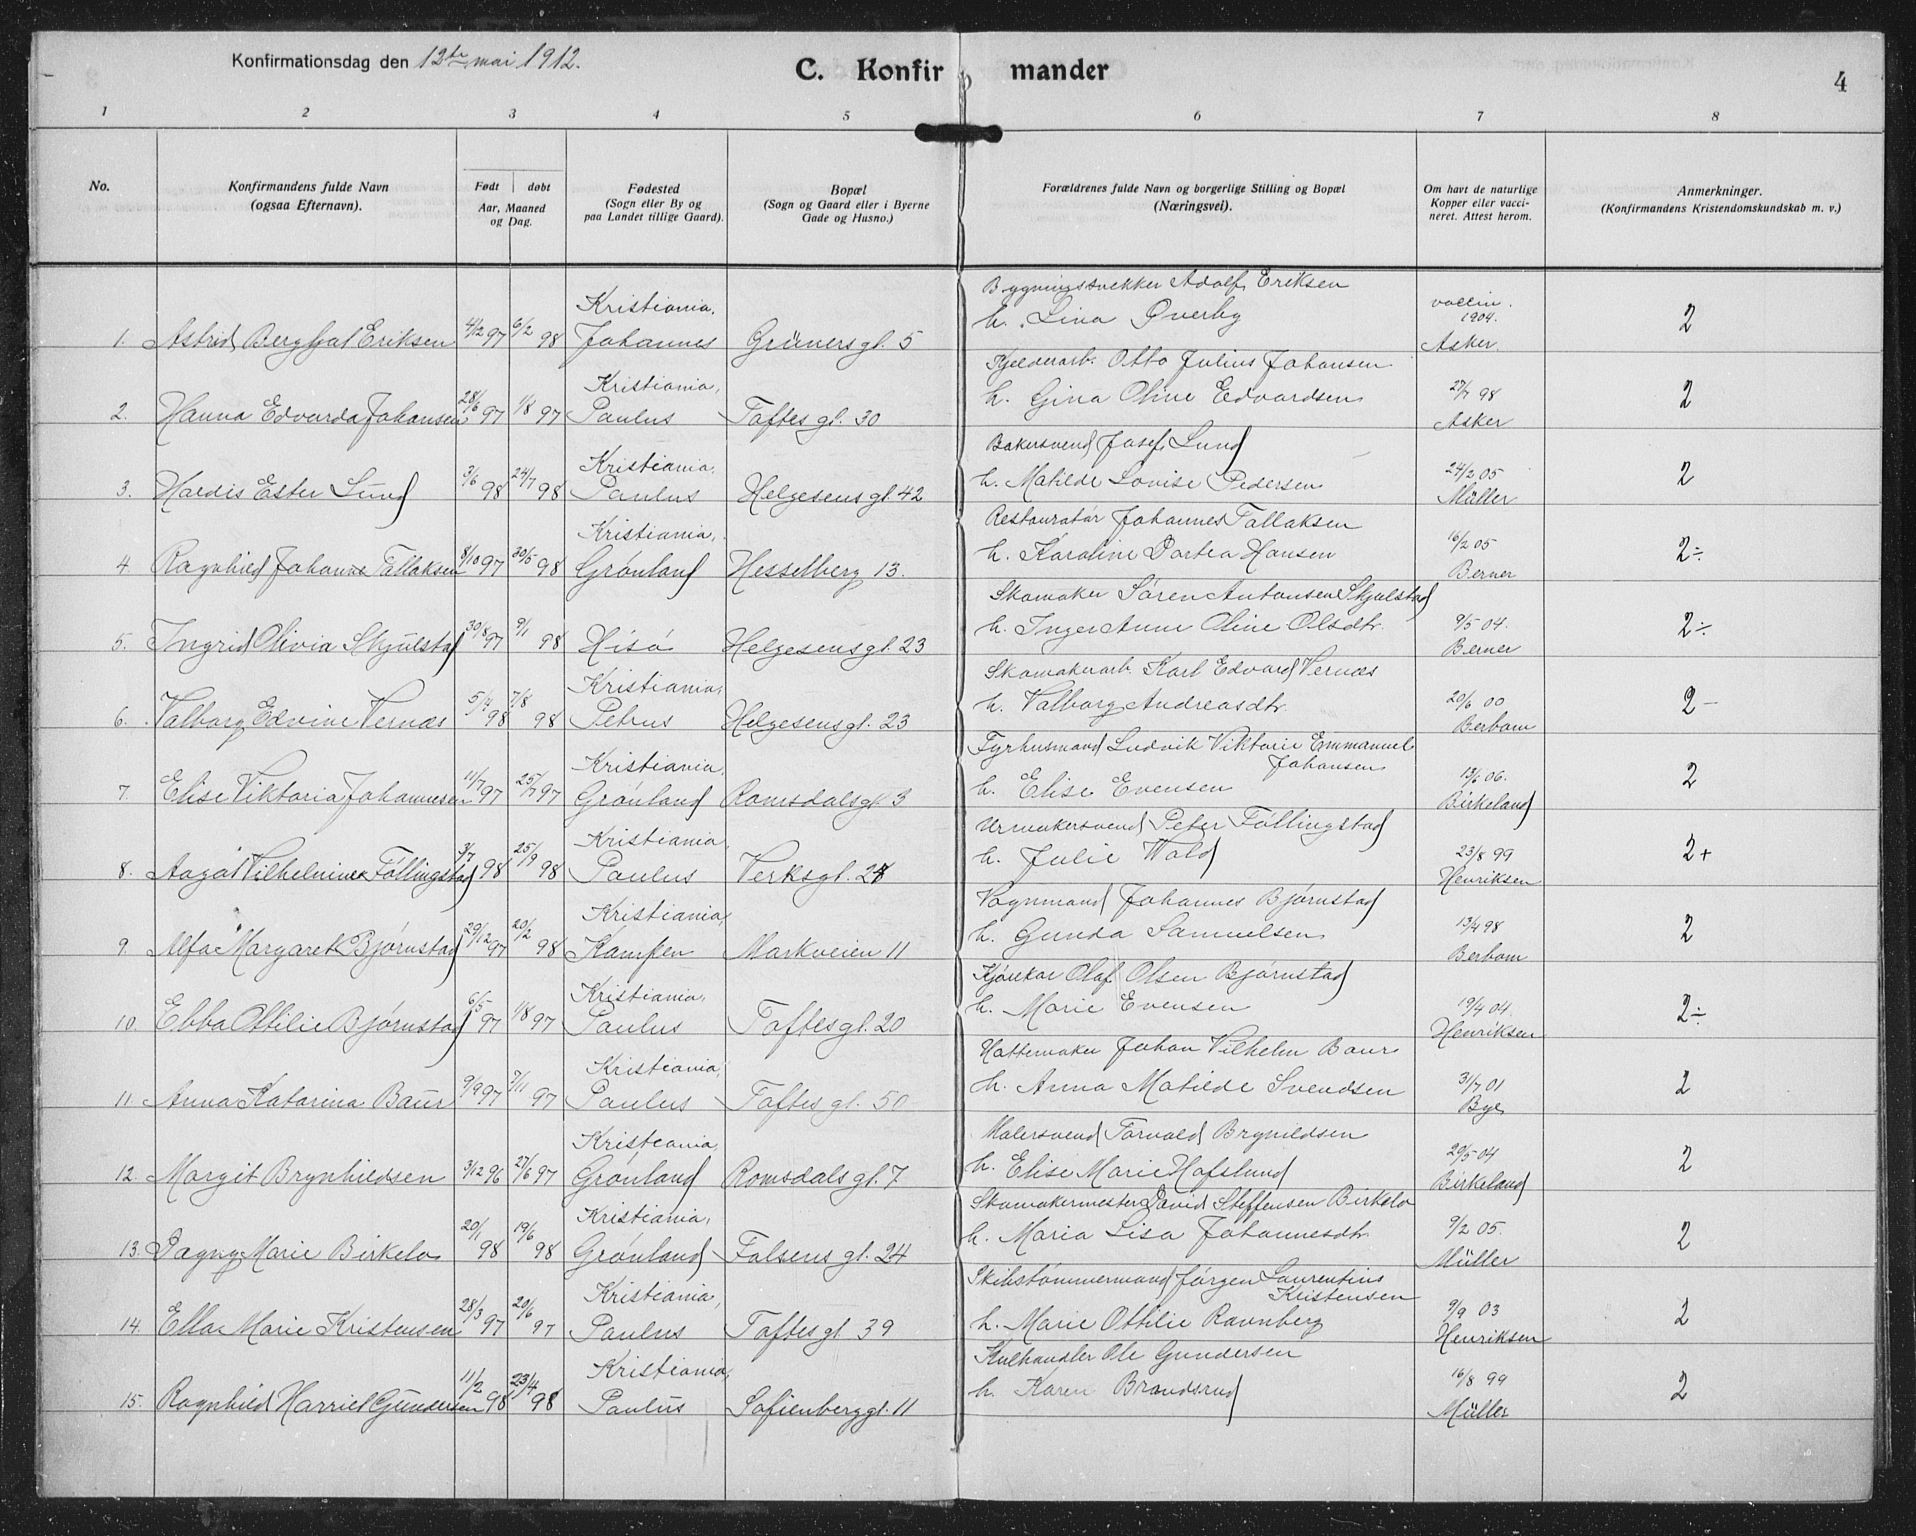 Konfirmationsdag den 12te mai 1912.
C. Konfirmander
4
1 2 3 4 5 6 7 8
No.
Konfirmandens fulde Navn
(ogsaa Efternavn).
Født | døbt
Aar, Maaned
og Dag.
Fødested
(Sogn eller By og
paa Landet tillige Gaard).
Bopæl
(Sogn og Gaard eller i Byerne
Gade og Husno.)
Forældrenes fulde Navn og borgerlige Stilling og Bopæl
(Næringsvei).
Om havt de naturlige
Kopper eller vacci-
neret. Attest herom.
Anmerkninger.
(Konfirmandens Kristendomskundskab m. v.)
Kristiania, Adolf Eriksen vaccin.
1904.
1. Astrid Eriksen 4/12 97 6/2 98 Johannes Grünersgt. 5 h. Lina Øverby Asker 2
Kristiania, Kjelderarb. Otto Julius Johansen
2. Hanna Edvarda Johansen 28/6 97 1/8 97 Paulus Toftesgt. 30 h. Gina Oline Edvardsen 27/7 98 Asker 2
Kristiania, Bakersvend Josef Lund
3. Haldis Ester Lund 3/6 98 24/7 98 Paulus Helgesensgt. 42 h. Matilde Lovise Pedersen 24/2 05 Müller 2
Kristiania, Restauratør Johannes Tallaksen
4. Ragnhild Johanne Tallaksen 8/10 97 30/5 98 Grønland Hesselberg 13. h. Karoline Dortea Hansen 16/2 05 Berner 2÷
Skomaker Søren Antonsen Skjulstad
5. Ingrid Olivia Skjulstad 30/8 97 9/1 98 Hisø Helgesensgt. 23 h. Inger Anne Oline Olsdtr. 9/5 04. Berner 2÷
Kristiania, Skomakerarb. Karl Edvard Vernæs
6. Valborg Edvine Vernæs 98 7/8 98 Petrus Helgesensgt. 23 h. Valborg Andreasdtr. 20/6 00 Berbom 2-
Kristiania, Fyrhusmand Ludvik Viktorie Emmanuel
Johansen
7. Elise Viktoria Johannesen 11/7 97 25/7 97 Grønland Romsdalsgt. 3 h. Elise Evensen 13/6 06. Birkeland 2
Kristiania, Urmakersvend Peter Føllingstad
8. Aagot Vilhelmine Føllingstad 3/7 98 25/9 98 Paulus Verksgt. h. Julie Wold 23/8 99 Henriksen 2+
Kristiania, Vognmand Johannes Bjørnstad
9. Alfa Margaret Bjørnstad 29/12 97 20/2 98 Kampen Markveien 11 h. Gunda Samuelsen 13/4 98 Berbom 2
Kristiania, Kjørekar Olaf Olsen Bjørnstad
10. Ebba Ottilie Bjørnstad 6/5 97 1/8 97 Paulus Toftesgt. 20 h. Marie Evensen 19/4 04. Henriksen 2÷
Kristiania, Hattemaker Johan Vilhelm Baur
11. Anna Katarina Baur 9/9 97 7/11 97 Paulus Toftesgt. 50 h. Anna Matilde Svendsen 31/7 01 Bye 2
Kristiania, Malersvend Torvald Brynildsen
12. Margit Brynhildsen 3/12 96 27/6 97 Grønland Romsdalsgt. 7 h. Elise Marie Hafslund 29/5 04 Birkeland 2
Kristiania, Skomakermester David Steffensen Birkelo
13. Dagny Marie Birkelo 20/1 98 19/6 98 Grønland Falsensgt. 24 h. Maria Lisa Johannesdtr. 9/2 05. Müller 2
Kristiania, Skibstømmermand Jørgen Laurentius
Kristensen
14. Ella Marie Kristensen 28/3 97 20/6 97 Paulus Toftesgt. 39 h. Marie Ottilie Ravnberg 9/9 03 Henriksen 2
Kristiania, Kulhandler Ole Gundersen
15. Ragnhild Harriet Gundersen 11/2 98 23/4 98 Paulus Sofienberggt. 11 h. Karen Brandsrud 16/8 99 Müller 2